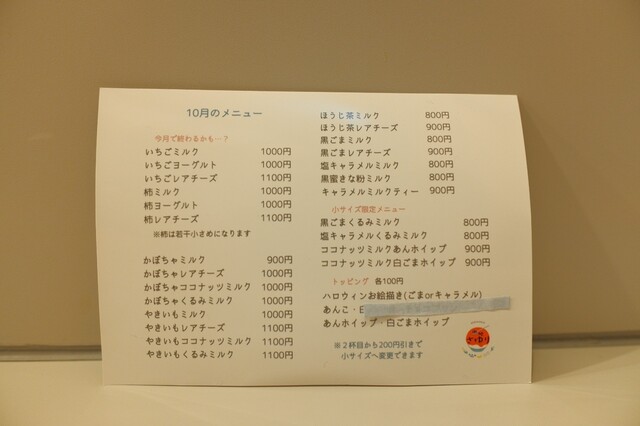 10月のメニュー
今月で終わるかも…?
いちごミルク 1000円
いちごヨーグルト 1000円
いちごレアチーズ 1100円
柿ミルク 1000円
柿ヨーグルト 1000円
柿レアチーズ 1100円
※柿は若干小さめになります
かぼちゃミルク 900円
かぼちゃレアチーズ 1000円
かぼちゃココナッツミルク 1000円
かぼちゃくるみミルク 1000円
やきいもミルク 1000円
やきいもレアチーズ 1100円
やきいもココナッツミルク 1100円
やきいもくるみミルク 1100円
ほうじ茶ミルク 800円
ほうじ茶レアチーズ 900円
黒ごまミルク 800円
黒ごまレアチーズ 900円
塩キャラメルミルク 800円
黒蜜きな粉ミルク 800円
キャラメルミルクティー 900円
小サイズ限定メニュー
黒ごまくるみミルク 800円
塩キャラメルくるみミルク 800円
ココナッツミルクあんホイップ 900円
ココナッツミルク白ごまホイップ 900円
トッピング 各100円
ハロウィンお絵描き(ごまorキャラメル)
あんこ・
あんホイップ・白ごまホイップ
※2杯目から200円引きで
小サイズへ変更できます
さゆり